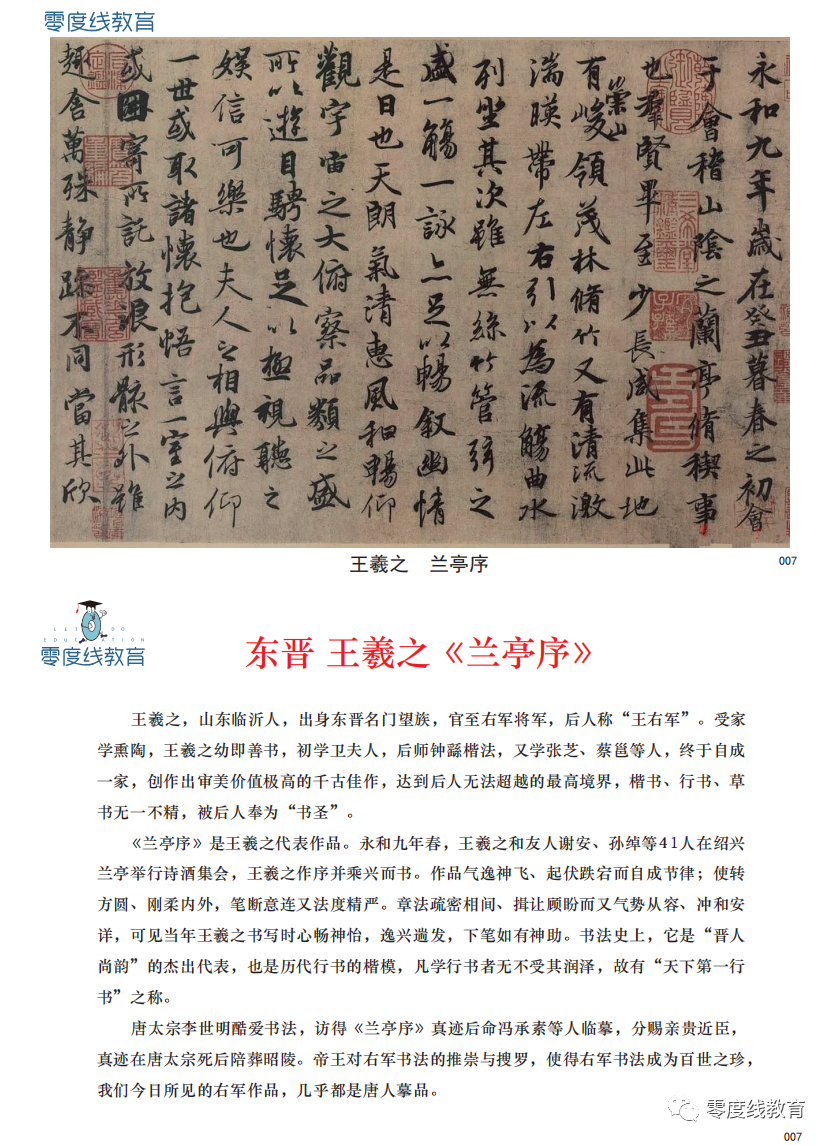 零度线教育
永和九年歲在癸丑暮春之初會
于會稽山陰之蘭亭脩稧事
也羣賢畢至少長咸集此地
有崇山峻領茂林脩竹又有清流激
湍暎帶左右引以為流觴曲水
列坐其次雖無絲竹管弦之
盛一觴一詠亦足以暢敘幽情
是日也天朗氣清惠風和暢仰
觀宇宙之大俯察品類之盛
所以遊目騁懷足以極視聽之
娛信可樂也夫人之相與俯仰
一世或取諸懷抱悟言一室之內
或因寄所託放浪形骸之外雖
趣舍萬殊靜躁不同當其欣
王羲之 兰亭序
007
LET DO
EDUCATION
零度线教育
东晋 王羲之《兰亭序》
王羲之，山东临沂人，出身东晋名门望族，官至右军将军，后人称“王右军”。受家
学熏陶，王羲之幼即善书，初学卫夫人，后师钟繇楷法，又学张芝、蔡邕等人，终于自成
一家，创作出审美价值极高的千古佳作，达到后人无法超越的最高境界，楷书、行书、草
书无一不精，被后人奉为“书圣”。
《兰亭序》是王羲之代表作品。永和九年春，王羲之和友人谢安、孙绰等41人在绍兴
兰亭举行诗酒集会，王羲之作序并乘兴而书。作品气逸神飞、起伏跌宕而自成节律；使转
方圆、刚柔内外，笔断意连又法度精严。章法疏密相间、揖让顾盼而又气势从容、冲和安
详，可见当年王羲之书写时心畅神怡，逸兴遄发，下笔如有神助。书法史上，它是“晋人
尚韵”的杰出代表，也是历代行书的楷模，凡学行书者无不受其润泽，故有“天下第一行
书”之称。
唐太宗李世明酷爱书法，访得《兰亭序》真迹后命冯承素等人临摹，分赐亲贵近臣，
真迹在唐太宗死后陪葬昭陵。帝王对右军书法的推崇与搜罗，使得右军书法成为百世之珍，
我们今日所见的右军作品，几乎都是唐人摹品。
零度线教育
007